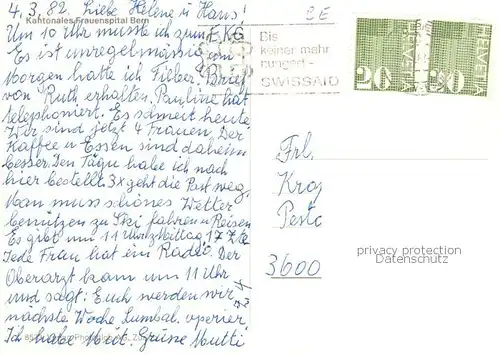 4.3.82. Liebe Helene u Hans!
Kantonales Frauenspital Bern
Um 10 Uhr musste ich zum EKG.
Es ist unregelmässig, am
Morgen hatte ich Silber. Brief
von Ruth erhalten. Pauline hat
telephoniert. Es schneit heute
Wir sind jetzt 4 Frauen. Der
Kaffee u Essen sind daheim
besser. Den Tagi habe ich nach
hier bestellt. 3x geht die Post weg.
Man muss schönes Wetter
benützen zu Ski fahren u Reisen
Es gibt um 11 Uhr z Mittag, 17
Jede Frau hat ein Radio. Der
Oberarzt kam um 11 Uhr
und sagt: Euch werden wir
nächste Woche Lumbal.
Ich habe Mut. Grüsse Mutti
Bis
keiner mehr
hungert -
SWISSAID
HELVETIA
20
HELVETIA
20
Frl.
3600
privacy protection
Datenschutz